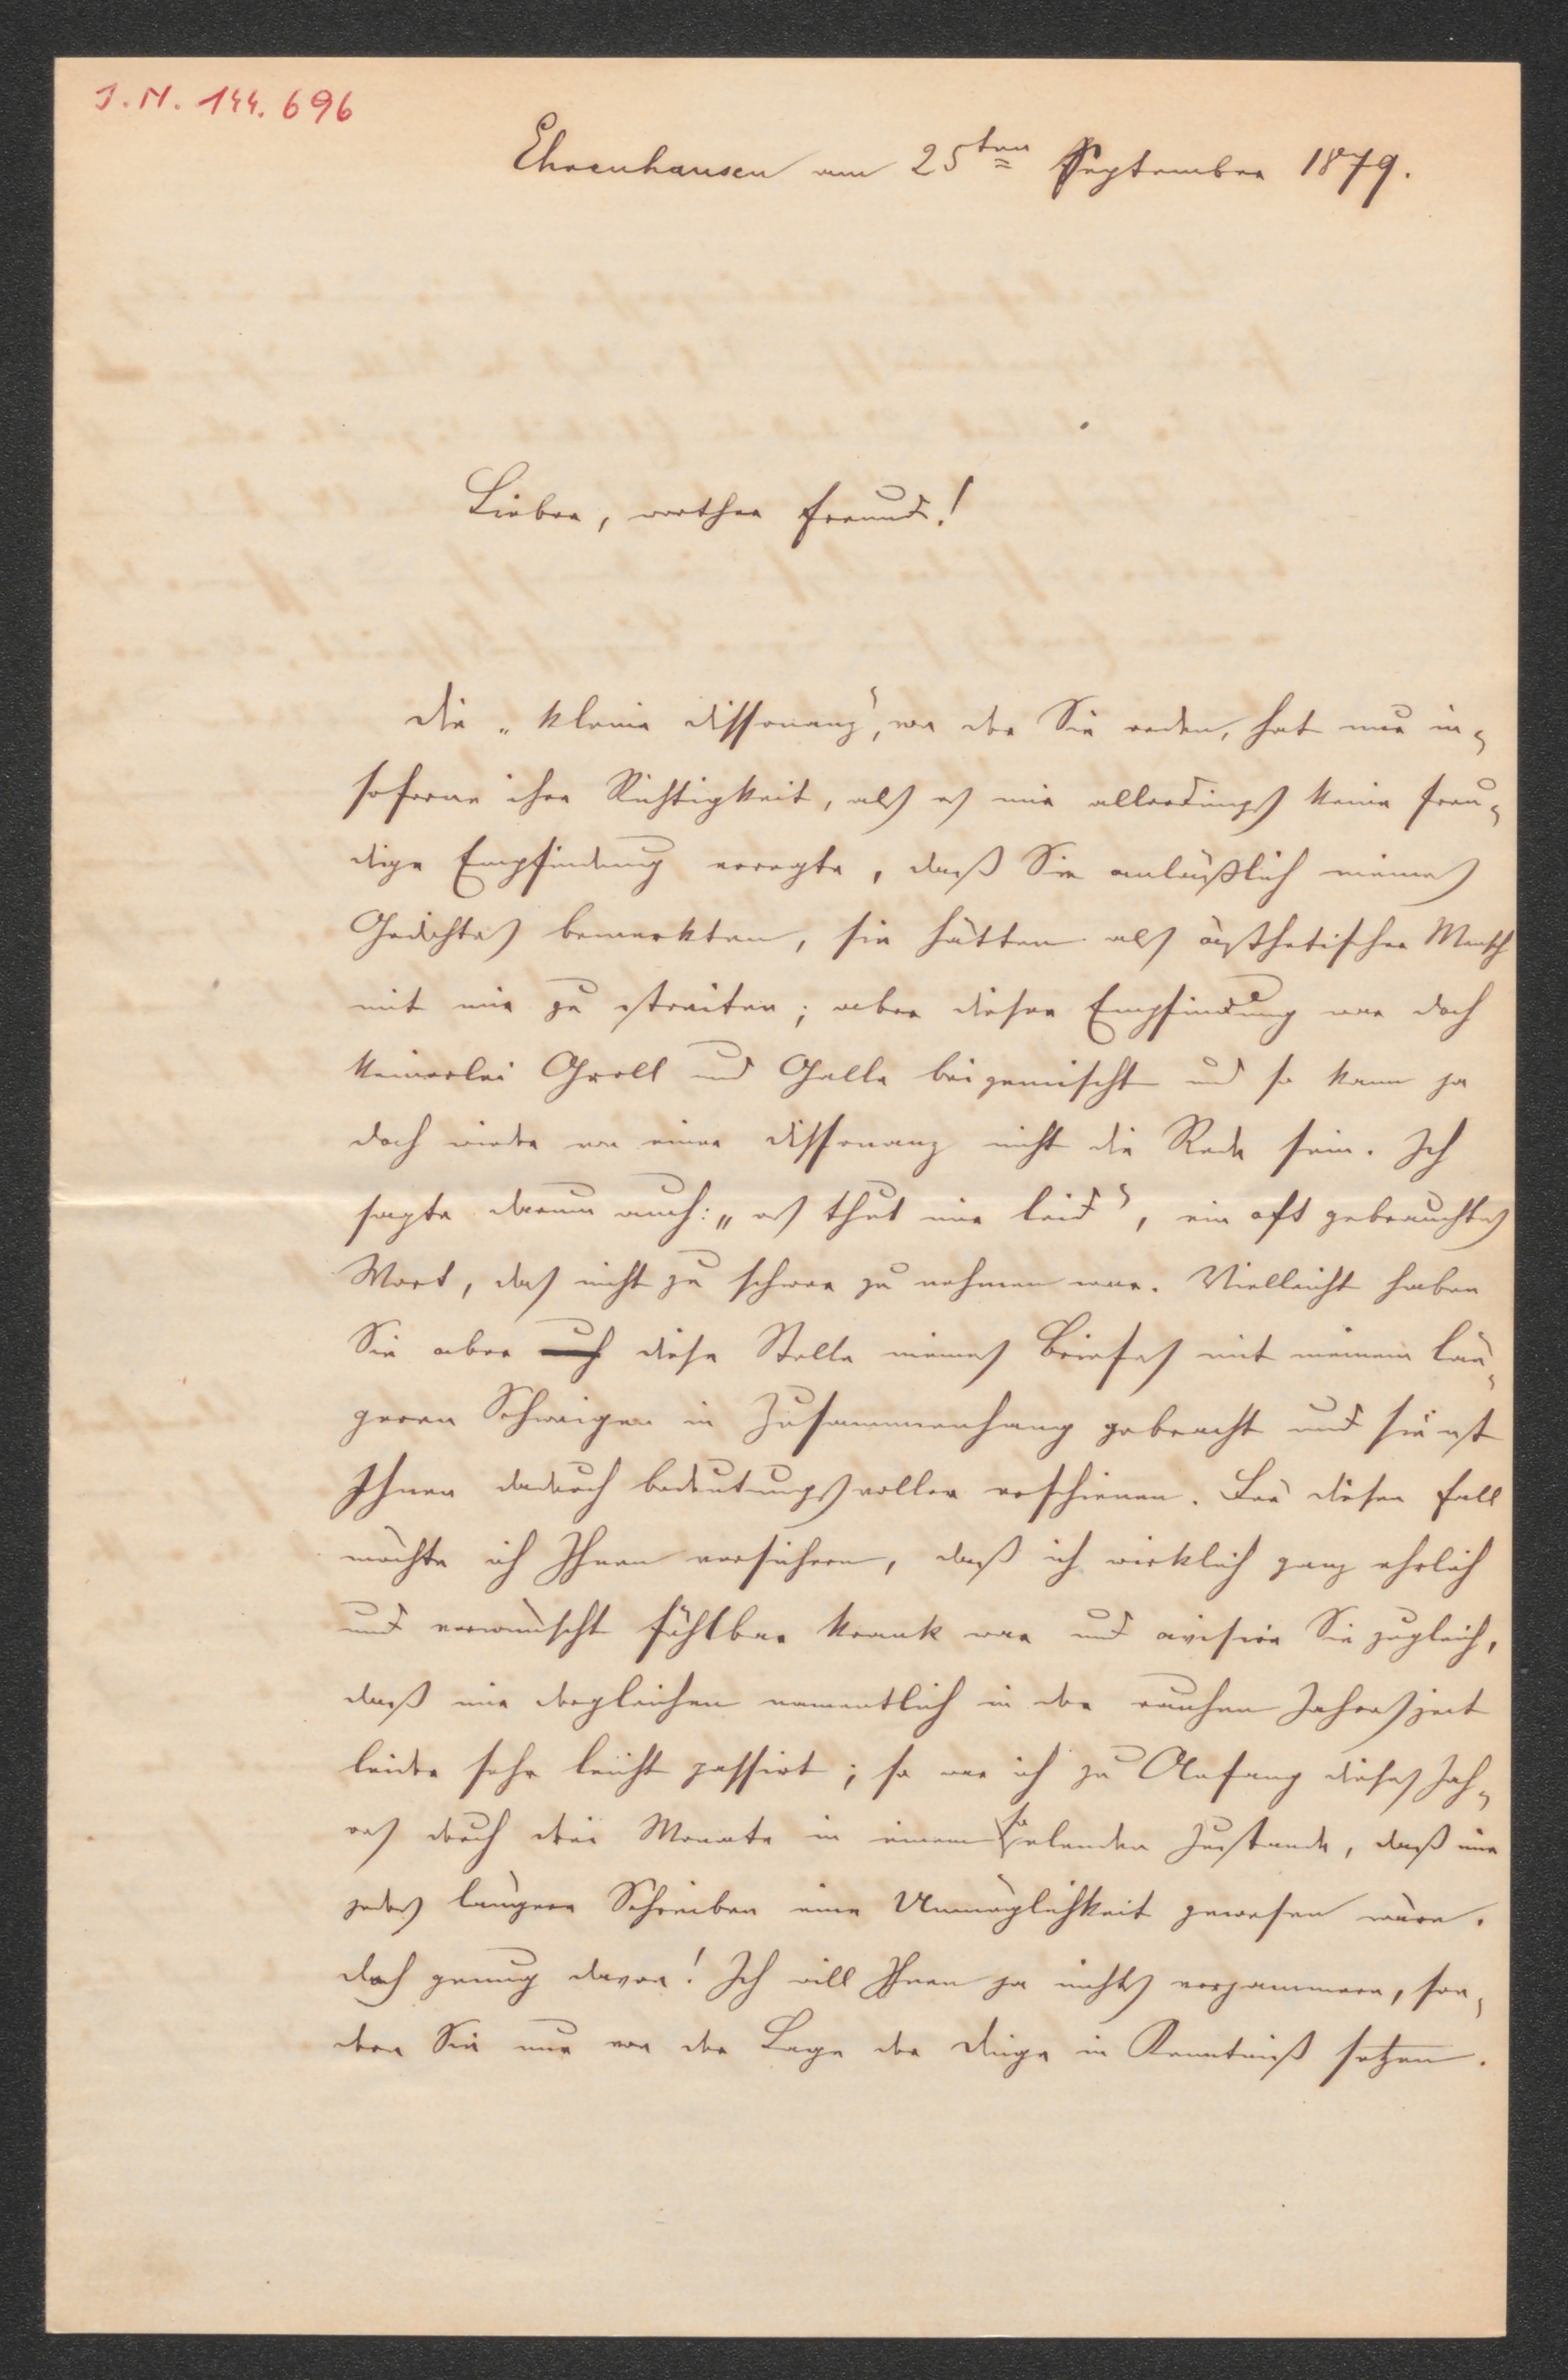 J. N. 144.696
Ehrenhausen am 25ten September 1879.
Lieber, werther Freund!
Die „kleine Dissonanz", von der Sie reden, hat nur in-
soferne ihre Richtigkeit, als es mir allerdings keine freu-
dige Empfindung erregte, daß Sie anläßlich meines
Gedichtes bemerkten, sie hätten als ästhetischer Mensch
mit mir zu streiten; aber dieser Empfindung war doch
keinerlei Groll und Galle beigemischt und so kann ja
doch wieder von einer Dissonanz nicht die Rede sein. Ich
sagte darum auch: „es thut mir leid", ein oft gebrauchtes
Wort, das nicht zu schwer zu nehmen war. Vielleicht haben
Sie aber diese Stelle meines Briefes mit meinem län-
geren Schweigen in Zusammenhang gebracht und sie ist
Ihnen dadurch bedeutungsvoller erschienen. Für diesen Fall
möchte ich Ihnen versichern, daß ich wirklich ganz ehrlich
und verwünscht fühlbar krank war und avisire Sie zugleich,
daß mir dergleichen namentlich in der rauhen Jahreszeit
leider sehr leicht passirt; so war ich zu Anfang dieses Jah-
res durch drei Monate in einem so elenden Zustande, daß mir
jedes längere Schreiben eine Unmöglichkeit gewesen wäre.
Doch genug davon! Ich will Ihnen ja nichts vorjammern, son-
dern Sie nur von der Lage der Dinge in Kenntniß setzen.